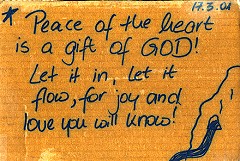 17.3.01
* Peace of the heart
is a gift of GOD!
Let it in, let it
flow, for joy and
love you will know!